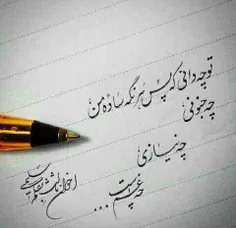 تو چه دانی که پس هر نگه ساده من
چه جنونی
چه نیازی
چه غمیست ...
اخوان ثالث